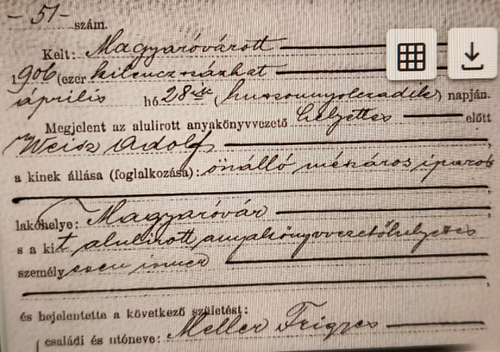 - 51 - szám.
Kelt: Magyaróvárott
1906 (ezer kilenczszázhat
április hó 28-ik (huszonnyolczadik) napján.
Megjelent az alulirott anyakönyvvezető helyettes előtt
Weisz Adolf
a kinek állása (foglalkozása): önálló mészáros iparos
lakóhelye: Magyaróvár
s a kit alulirott anyakönyvvezetőhelyettes
személyesen ismer
és bejelentette a következő születést:
családi és utóneve: Meller Frigyes